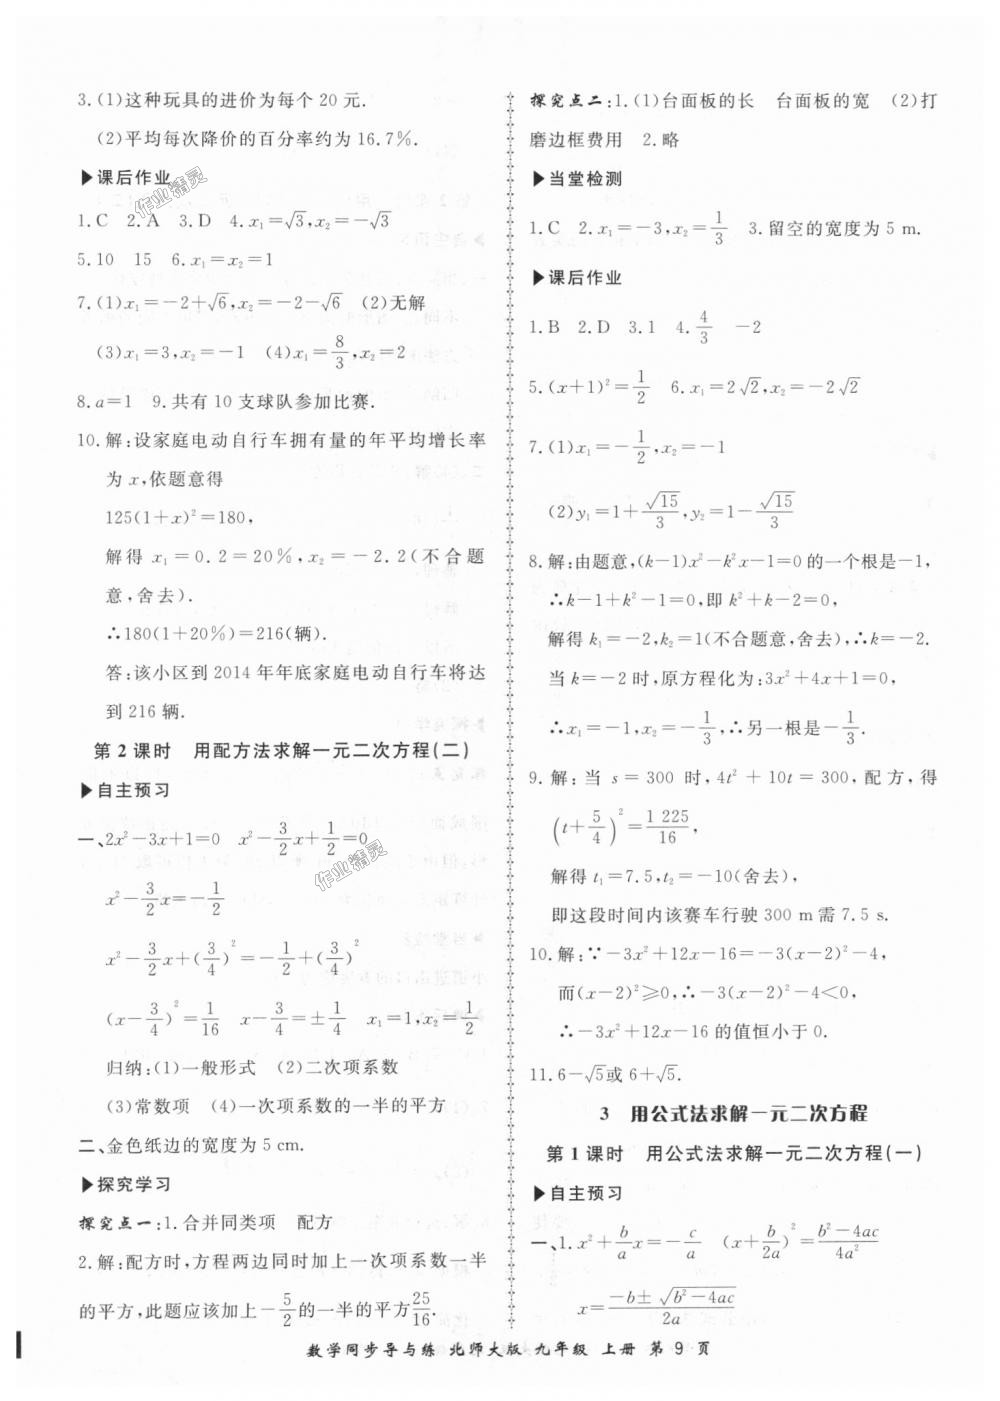 3.(1)这种玩具的进价为每个 20 元.
(2)平均每次降价的百分率约为 16.7%.
▶课后作业
1.C 2.A 3.D 4.x₁=√3,x₂=-√3
5.10 15 6.x₁=x₂=1
7.(1)x₁=-2+√6,x₂=-2-√6 (2)无解
(3)x₁=3,x₂=-1 (4)x₁=8/3,x₂=2
8.a=1 9.共有 10 支球队参加比赛.
10.解:设家庭电动自行车拥有量的年平均增长率
为 x,依题意得
125(1+x)²=180,
解得 x₁=0.2=20%,x₂=-2.2(不合题
意,舍去).
∴180(1+20%)=216(辆).
答:该小区到 2014 年年底家庭电动自行车将达
到 216 辆.
第 2 课时 用配方法求解一元二次方程(二)
▶自主预习
一、2x²-3x+1=0 x²-3/2x+1/2=0
x²-3/2x=-1/2
x²-3/2x+(3/4)²=-1/2+(3/4)²
(x-3/4)²=1/16 x-3/4=±1/4 x₁=1,x₂=1/2
归纳:(1)一般形式 (2)二次项系数
(3)常数项 (4)一次项系数的一半的平方
二、金色纸边的宽度为 5 cm.
▶探究学习
探究点一:1.合并同类项 配方
2.解:配方时,方程两边同时加上一次项系数一半
的平方,此题应该加上-5/2的一半的平方25/16.
探究点二:1.(1)台面板的长 台面板的宽 (2)打
磨边框费用 2.略
▶当堂检测
1.C 2.x₁=-3,x₂=1/3 3.留空的宽度为 5 m.
▶课后作业
1.B 2.D 3.1 4.4/3 -2
5.(x+1)²=1/2 6.x₁=2√2,x₂=-2√2
7.(1)x₁=-1/2,x₂=-1
(2)y₁=1+√15/3,y₂=1-√15/3
8.解:由题意,(k-1)x²-k²x-1=0 的一个根是-1,
∴k-1+k²-1=0,即 k²+k-2=0,
解得 k₁=-2,k₂=1(不合题意,舍去),∴k=-2.
当 k=-2 时,原方程化为:3x²+4x+1=0,
∴x₁=-1,x₂=-1/3,∴另一根是-1/3.
9.解:当 s=300 时,4t²+10t=300,配方,得
(t+5/4)²=1 225/16,
解得 t₁=7.5,t₂=-10(舍去),
即这段时间内该赛车行驶 300 m 需 7.5 s.
10.解:∵-3x²+12x-16=-3(x-2)²-4,
而(x-2)²≥0,∴-3(x-2)²-4<0,
∴-3x²+12x-16 的值恒小于 0.
11.6-√5或 6+√5.
3 用公式法求解一元二次方程
第 1 课时 用公式法求解一元二次方程(一)
▶自主预习
一、1.x²+b/ax=-c/a (x+b/2a)²=b²-4ac/4a²
x=-b±√b²-4ac/2a
数学同步导与练 北师大版 九年级 上册 第 9 页
作业精灵
作业精灵